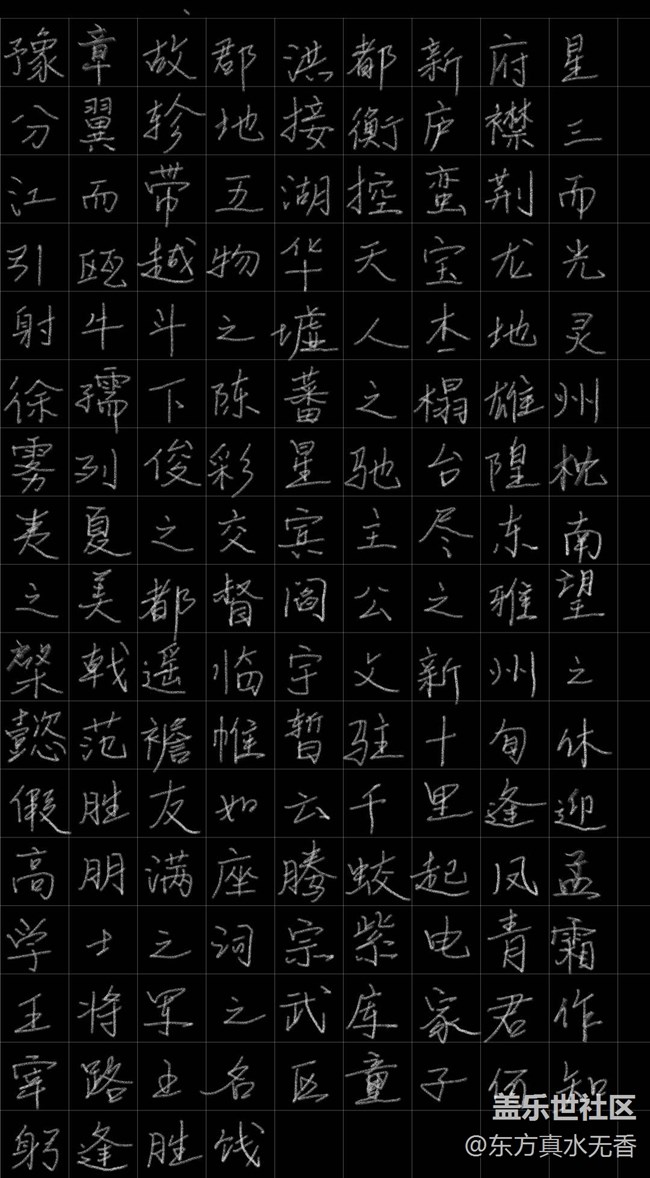 豫章故郡洪都新府星
分翼轸地接衡庐襟三
江而带五湖控蛮荆而
引瓯越物华天宝龙光
射牛斗之墟人杰地灵
徐孺下陈蕃之榻雄州
雾列俊彩星驰台隍枕
夷夏之交宾主尽东南
之美都督阎公之雅望
棨戟遥临宇文新州之
懿范襜帷暂驻十旬休
假胜友如云千里逢迎
高朋满座腾蛟起凤孟
学士之词宗紫电青霜
王将军之武库家君作
宰路出名区童子何知
躬逢胜饯
盖乐世社区
@东方真水无香